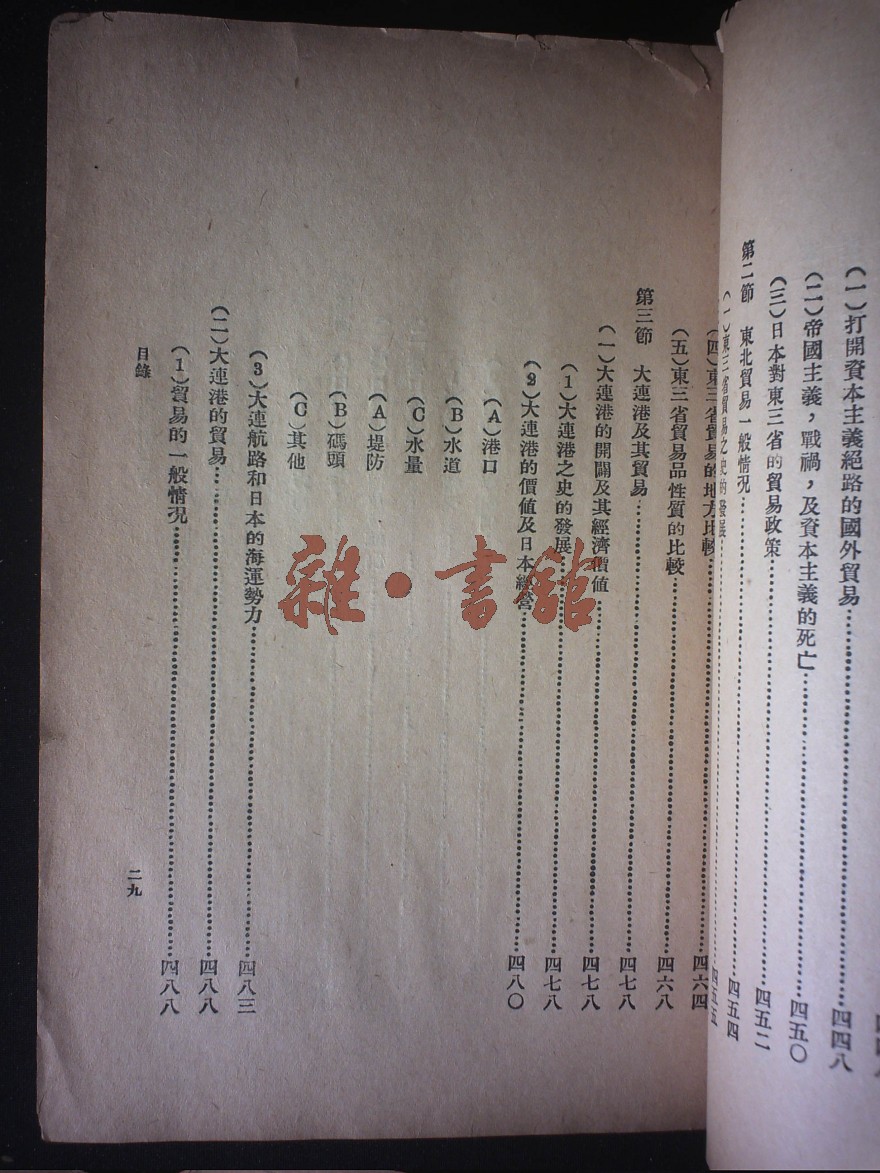 (一)打開資本主義絕路的國外貿易……四四八
(二)帝國主義,戰禍,及資本主義的死亡……四五〇
(三)日本對東三省的貿易政策……四五二
第二節 東北貿易一般情况……四五四
(一)東三省貿易之史的發展……四五五
(四)東三省貿易的地方比較……四六四
(五)東三省貿易品性質的比較……四六八
第三節 大連港及其貿易……四七八
(一)大連港的開闢及其經濟價値……四七八
(1)大連港之史的發展……四七八
(2)大連港的價値及日本經營……四八〇
(A)港口
(B)水道
(C)水量
(A)堤防
(B)碼頭
(C)其他
(3)大連航路和日本的海運勢力……四八三
(二)大連港的貿易……四八八
(1)貿易的一般情况……四八八
目錄 二九
雜·書館